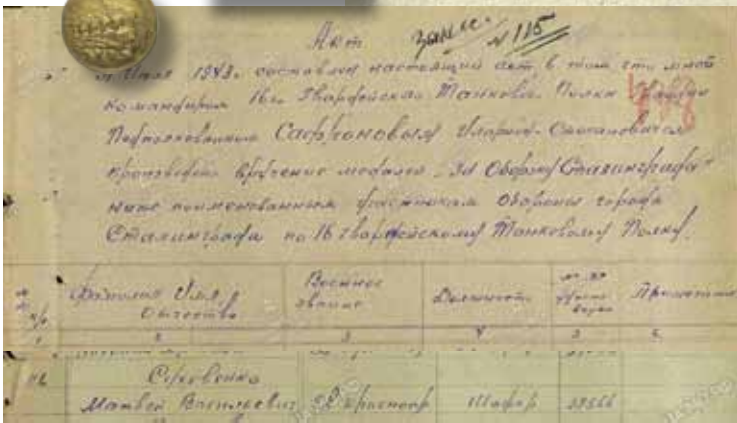 Акт
Занес. № 115
Июля 1943г. составлен настоящий акт, в том что мной
Командиром 16го Гвардейского Танкового Полка Гвардии
Подполковником Сафроновым
произведено вручение медалей "За Оборону Сталинграда"
ниже поименованным участникам Обороны города
Сталинграда по 16 гвардейскому Танковому Полку.
Фамилия Имя Отчество
Военное звание
Должность
№№ удостоверен
Примечание
1 2 3 4 5 6
Матвей Васильевич Гв. красноар Шофер